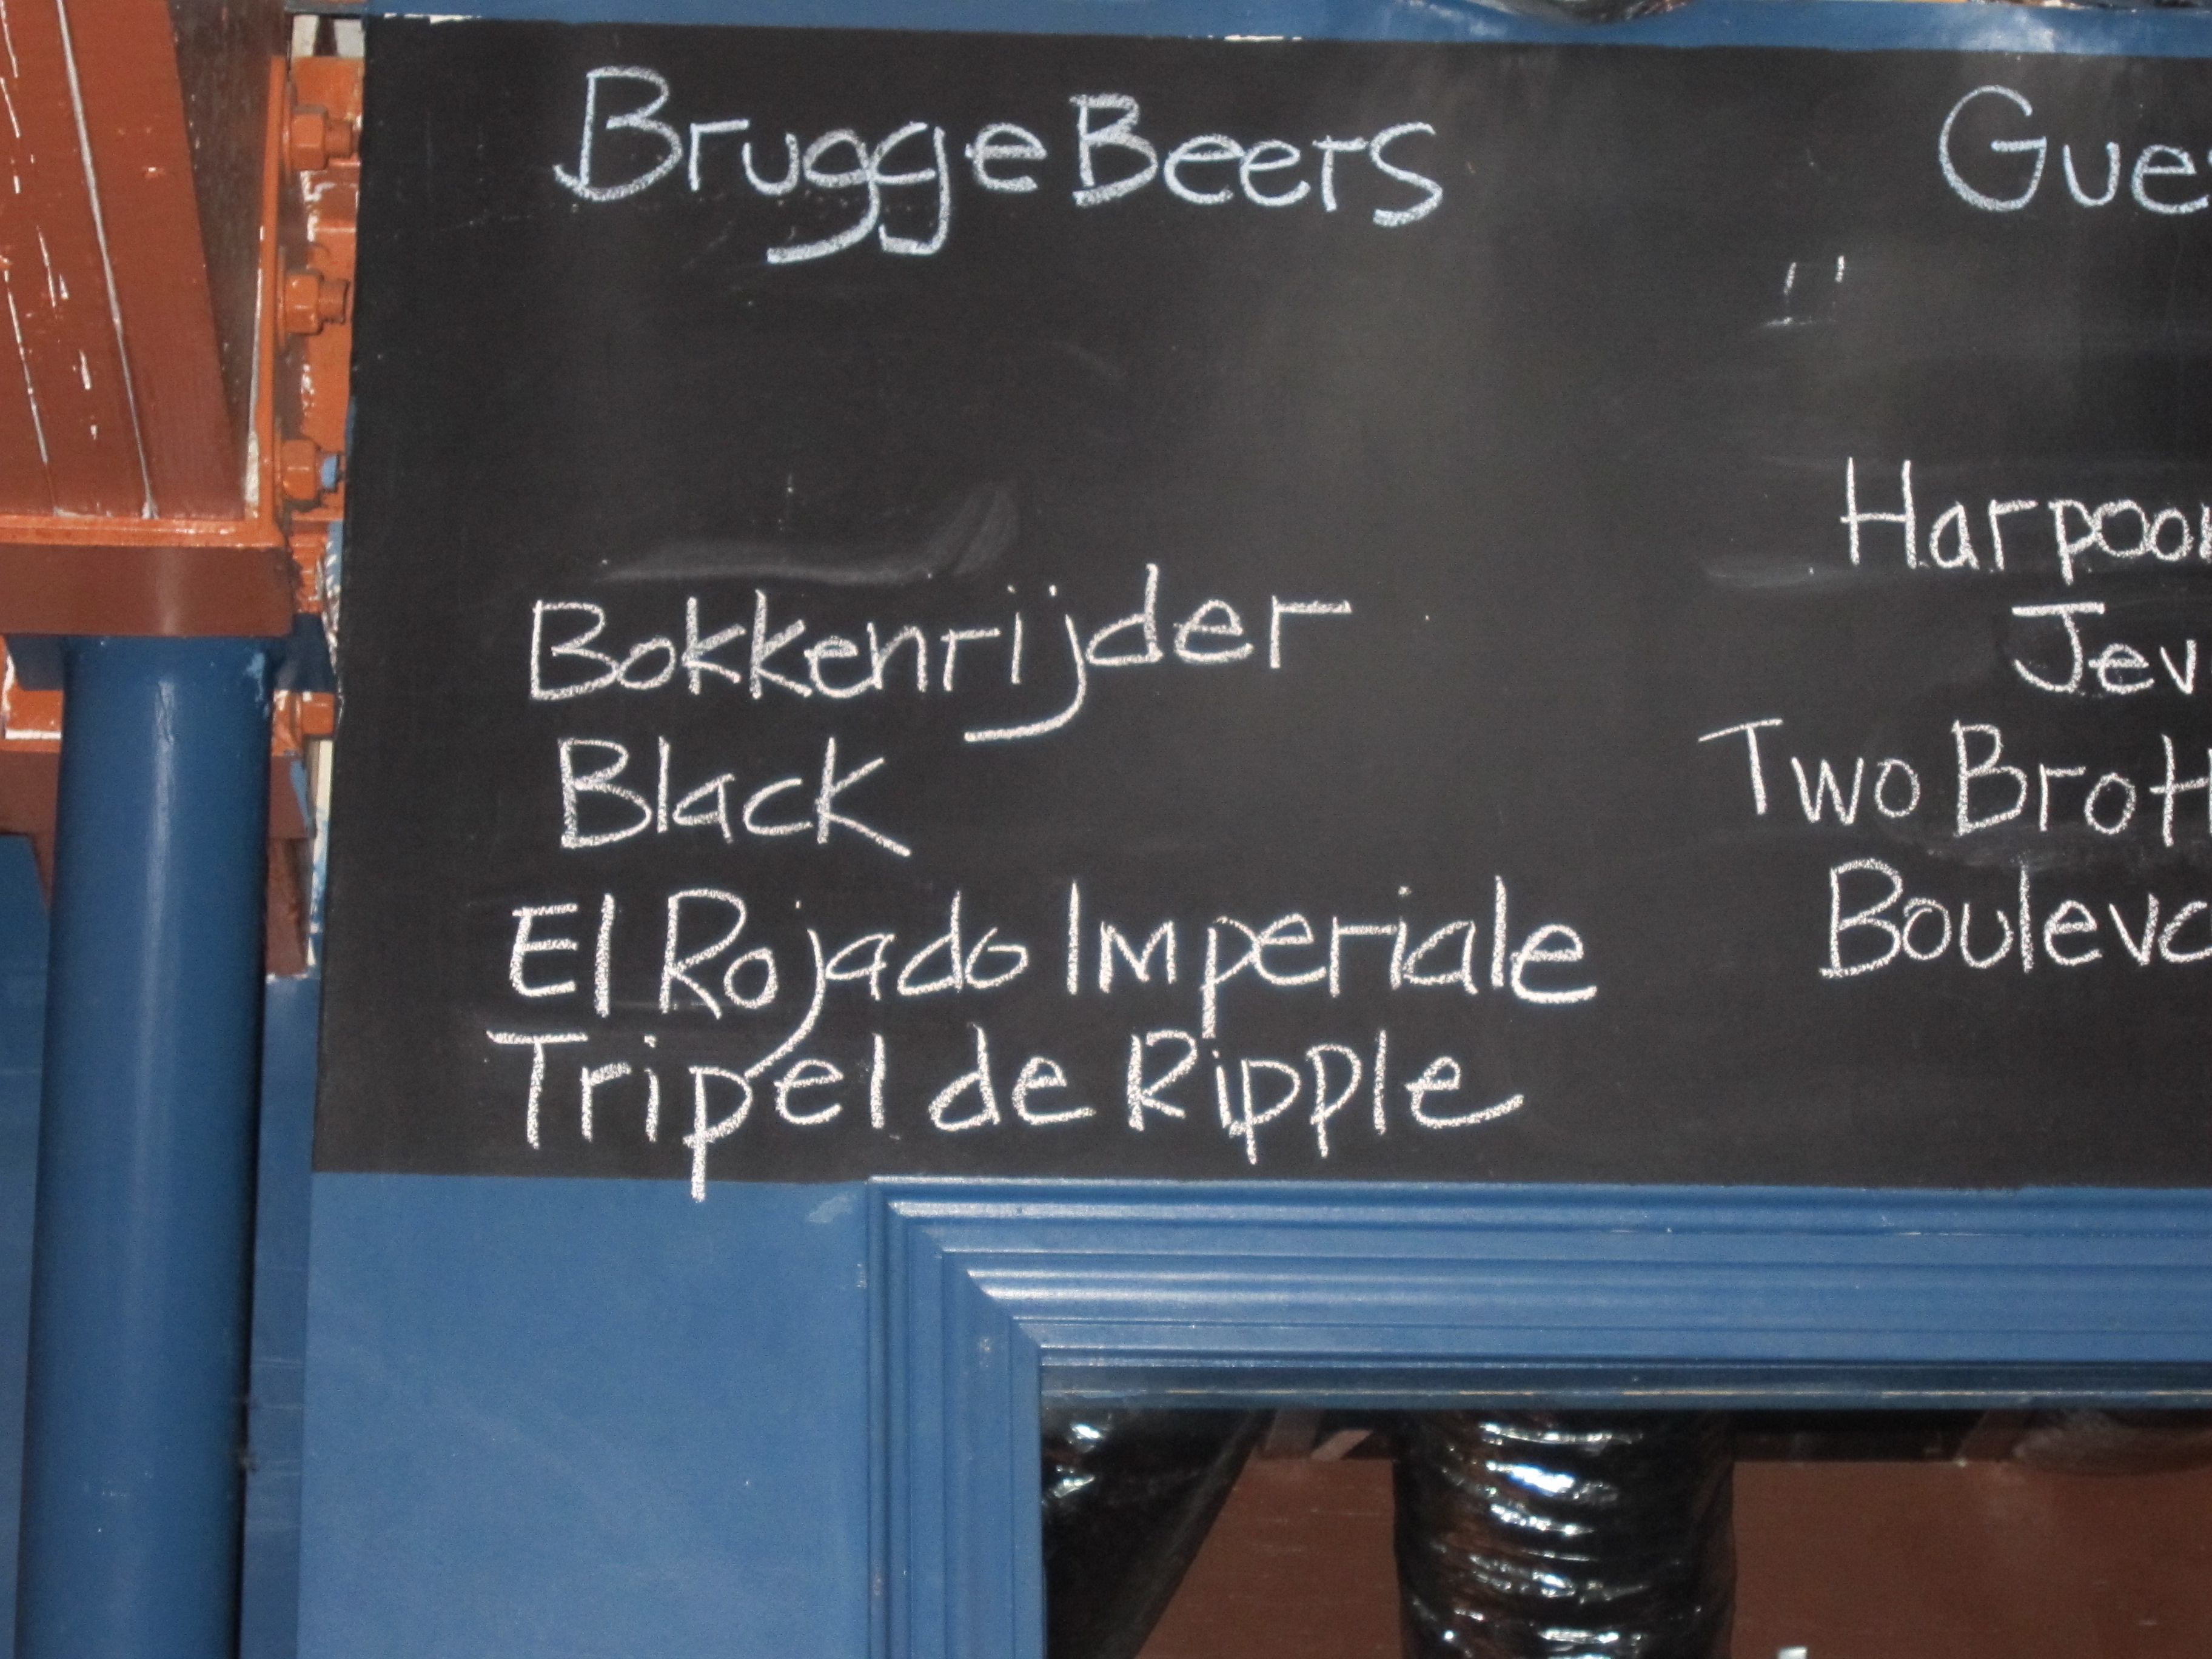 Brugge Beers
Bokkenrijder
Black
El Rojado Imperiale
Tripel de Ripple
Gues
Harpoon
Jev
Two Broth
Bouleva